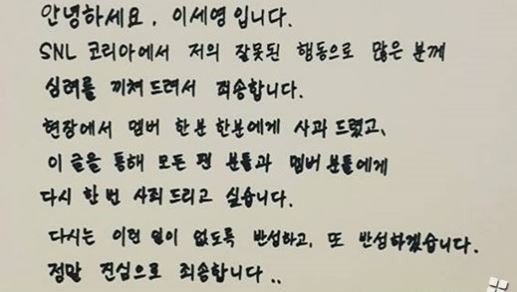 안녕하세요, 이세영입니다.
SNL 코리아에서 저의 잘못된 행동으로 많은 분께
심려를 끼쳐드려서 죄송합니다.
현장에서 멤버 한분한분에게 사과 드렸고,
이 글을 통해 모든 팬 분들과 멤버분들에게
다시 한 번 사죄드리고 싶습니다.
다시는 이런 일이 없도록 반성하고, 또 반성하겠습니다.
정말 진심으로 죄송합니다..